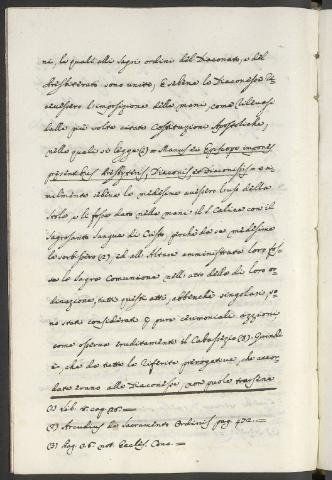 ni, le quali alli Sagri ordini del Diaconato, e del
Presbiterato sono unite, E sebene le Diaconesse ri-
cevessero l'imposizione delle mani come rilevasi
dalle più volte citate Costituzioni Apostoliche,
nelle quali si legge (1) = Manus ei Episcope impones
presentibus Presbyteris, Diaconis et Diaconissis = e si-
milmente sebene le medesime avessero l'uso della
Stola, e li fosse dato nelle mani il S. Calice con il
Sagrosanto Sangue di Cristo, perchè da se medesime
lo sortissero (2), ed all'Altare amministrata loro fos-
se la Sagra Comunione nell'atto della di loro or-
dinazione, tutti questi atti, abbenchè singolari, so-
no stati considerati p. pure cerimoniali azzioni
come osserva eruditamente il Cabassuzio (3). Quindi
è, che da tutte le riferite prerogative, che accor-
date erano alle Diaconesse, non puole trarsene
(1) Lib. 8. cap. 25. =
(2) Arcudius de Sacramento Ordinis pag. 472. =
(3) Pag. 36. not. Eccles. Conc. =